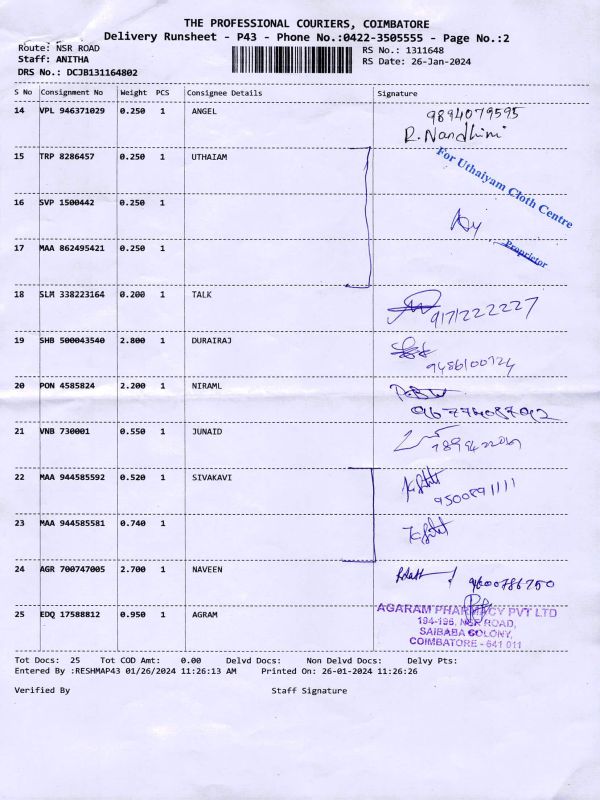 THE PROFESSIONAL COURIERS, COIMBATORE
Delivery Runsheet - P43 - Phone No.:0422-3505555 - Page No.:2
Route: NSR ROAD
Staff: ANITHA
DRS No.: DCJB131164802
RS No.: 1311648
RS Date: 26-Jan-2024
S No Consignment No Weight PCS Consignee Details Signature
14 VPL 946371029 0.250 1 ANGEL 9894079595
R. Nandhini
15 TRP 8286457 0.250 1 UTHAIAM
For Uthaiyam Cloth Centre
16 SVP 1500442 0.250 1
Proprietor
17 MAA 862495421 0.250 1
18 SLM 338223164 0.200 1 TALK
9171222227
19 SHB 500043540 2.800 1 DURAIRAJ
9486100724
20 PON 4585824 2.200 1 NIRAML
21 VNB 730001 0.550 1 JUNAID
22 MAA 944585592 0.520 1 SIVAKAVI
9500891111
23 MAA 944585581 0.740 1
24 AGR 700747005 2.700 1 NAVEEN
9600786750
25 EDQ 17588812 0.950 1 AGRAM
AGARAM PHARMACY PVT LTD
194-196, NSR ROAD,
SAIBABA COLONY,
COIMBATORE - 641 011
Tot Docs: 25 Tot COD Amt: 0.00 Delvd Docs: Non Delvd Docs: Delvy Pts:
Entered By :RESHMAP43 01/26/2024 11:26:13 AM Printed On: 26-01-2024 11:26:26
Verified By Staff Signature